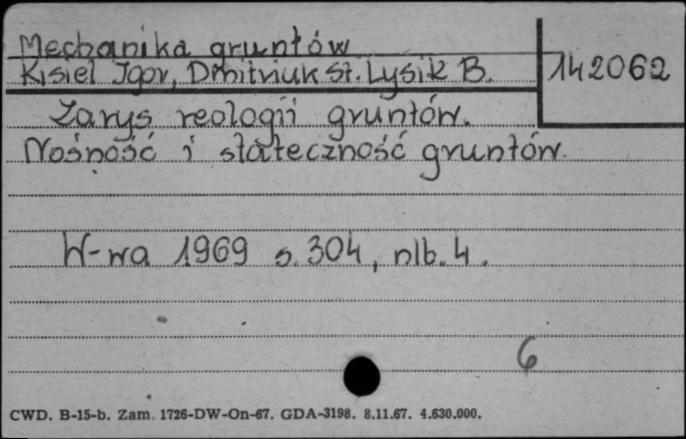 Mechanika gruntów
Kisiel Igor, Dmitriuk St. Lysik B.
142062
Zarys reologii gruntów.
Nośność i stateczność gruntów.
W-wa 1969 s. 304, nlb. 4.
6
CWD. B-15-b. Zam. 1726-DW-On-67. GDA-3198. 8.11.67. 4.630.000.